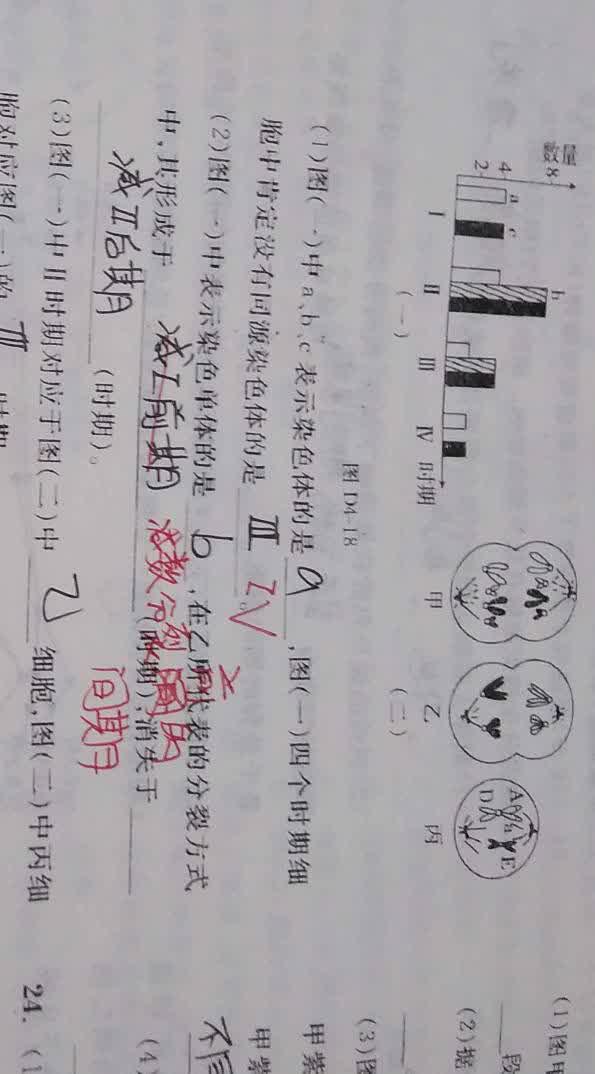 数量
8
4
2
a
c
b
Ⅰ Ⅱ Ⅲ Ⅳ 时期
(一)
A
D
E
甲 乙 丙
(二)
图 D4-18
(1)图(一)中 a、b、c 表示染色体的是 a ,图(一)四个时期细
胞中肯定没有同源染色体的是 Ⅲ ⅠV
(2)图(一)中表示染色单体的是 b ,在乙所代表的分裂方式
中,其形成于 减Ⅰ前期 减数分裂 间期 (时期),消失于
减Ⅱ后期 (时期)。
(3)图(一)中Ⅱ时期对应于图(二)中 乙 细胞,图(二)中丙细
胞对应图(一)的 Ⅲ 时期
(1)图甲
段
(2)据
(3)图
甲紫
甲紫
不同
(4)
24. (1